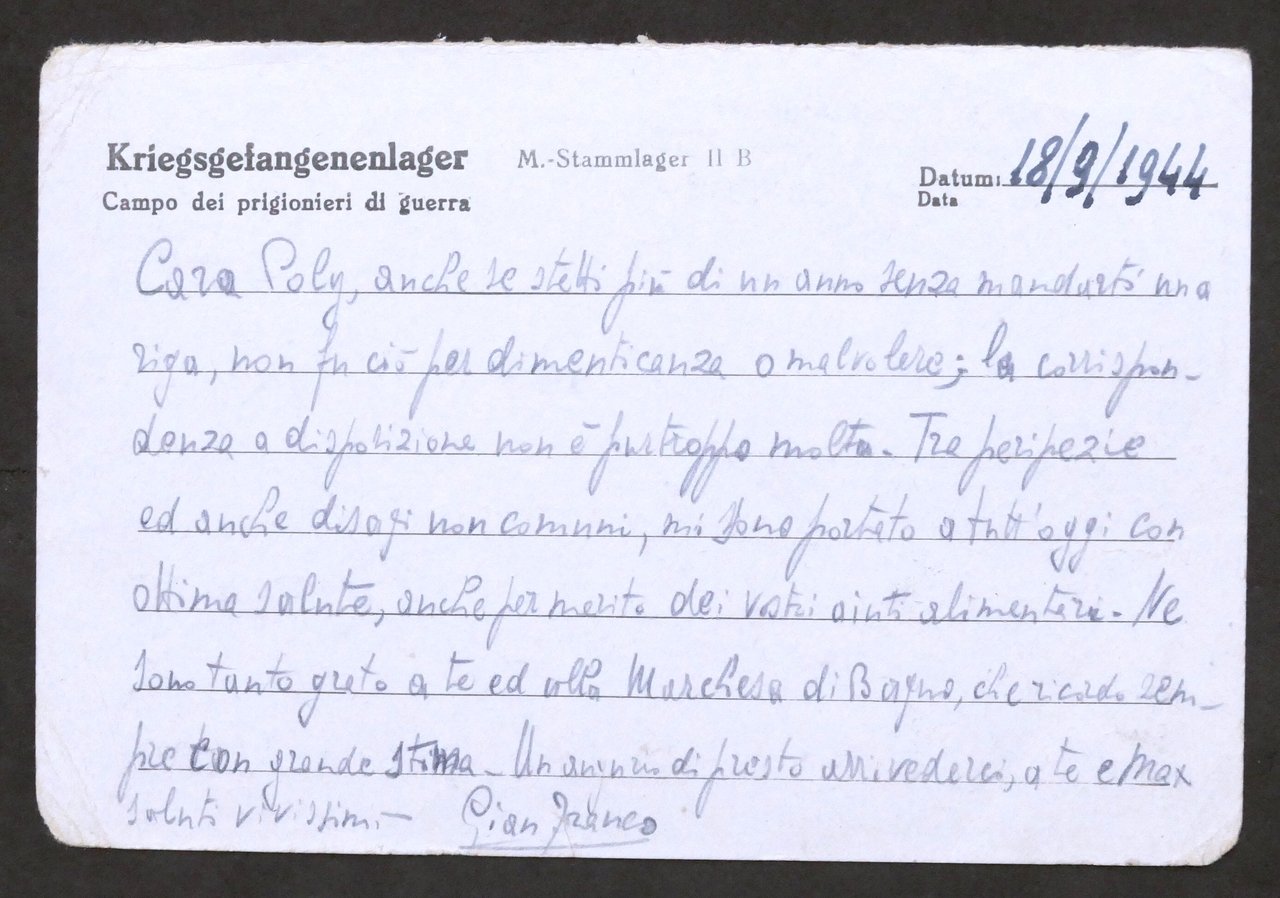 Kriegsgefangenenlager M.-Stammlager II B
Campo dei prigionieri di guerra
Datum: 18/9/1944
Data
Cara Poly, anche se stetti più di un anno senza mandarti una
riga, non fu ciò per dimenticanza o malvolere; la corrispon-
denza a disposizione non è purtroppo molta. Tra peripezie
ed anche disagi non comuni, mi sono portato a tutt'oggi con
ottima salute, anche per merito dei vostri aiuti alimentari. Ne
sono tanto grato a te ed alla Marchesa di Bagno, che ricordo sem-
pre con grande stima. Un augurio di presto arrivederci, a te e Max
saluti vivissimi - Gian Franco